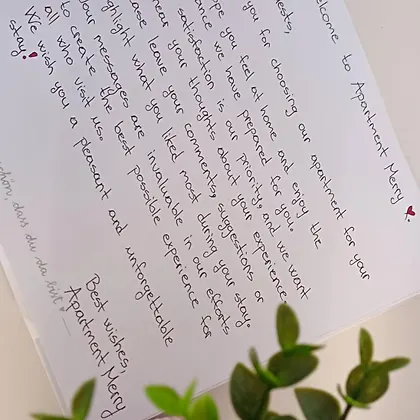 elcome to Apartment Merry
ests,
you for choosing our apartment for your
pe you feel at home and enjoy the
ance we have prepared for you.
satisfaction is our priority, and we want
hear your thoughts about your experience.
ase leave your comments, suggestions or
ghlight what you liked most during your stay.
our messages are invaluable in our efforts
to create the best possible experience for
all who visit us.
We wish you a pleasant and unforgettable
stay!
Best wishes,
Apartment Merry
schön, dass du da bist.